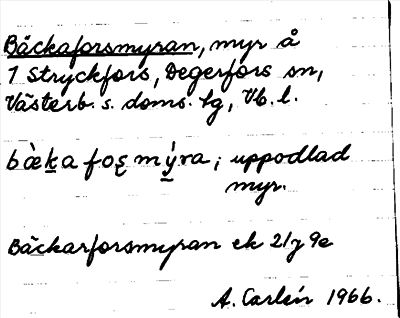 Bäckaforsmyran, myr å
1 Stryckfors, Degerfors sn,
Västerb. s. doms. lg, Vb. l.
bæ̀ka foʂ mýra; uppodlad
myr.
Bäckarforsmyran ek 21/7 9e
A. Carlén 1966.